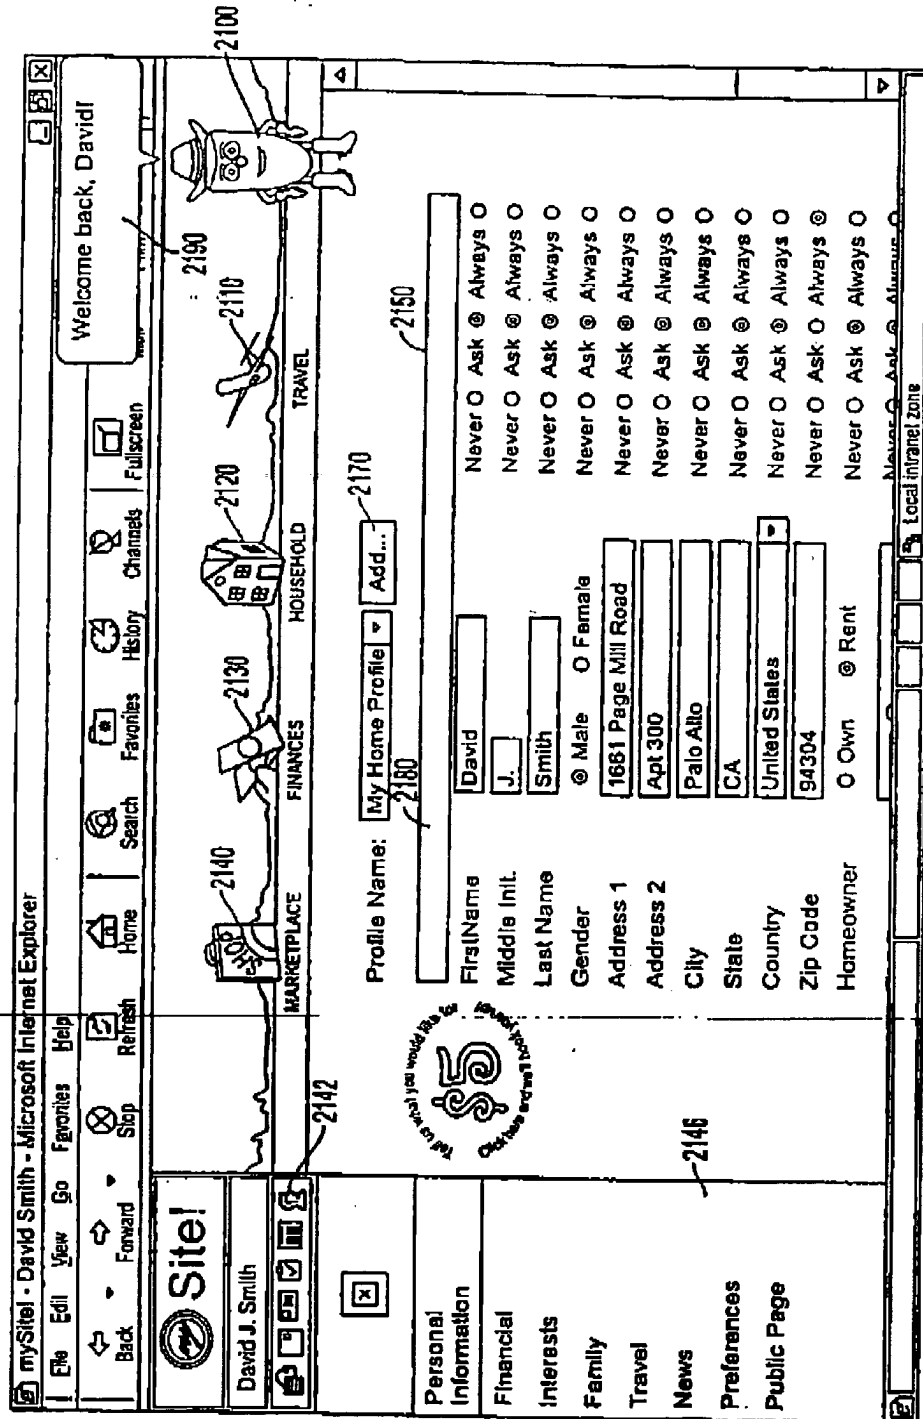 mySite! - David Smith - Microsoft Internet Explorer
File Edit View Go Favorites Help
Back Forward Stop Refresh Home Search Favorites History Channels Fullscreen
Welcome back, David!
2190
2100
my Site!
David J. Smith
2142
SHOP
2140
2130
2120
2110
MARKETPLACE FINANCES HOUSEHOLD TRAVEL
Personal
Information
Financial
Interests
Family
Travel
News
Preferences
Public Page
2146
Tell us what you would like for
$5
Click here and we'll book
Profile Name: My Home Profile Add...
2170
2180
2150
FirstName David Never Ask Always
Middle Init. J. Never Ask Always
Last Name Smith Never Ask Always
Gender Male Female Never Ask Always
Address 1 1661 Page Mill Road Never Ask Always
Address 2 Apt 300 Never Ask Always
City Palo Alto Never Ask Always
State CA Never Ask Always
Country United States Never Ask Always
Zip Code 94304 Never Ask Always
Homeowner Own Rent Never Ask Always
Never Ask Always
Local intranet zone